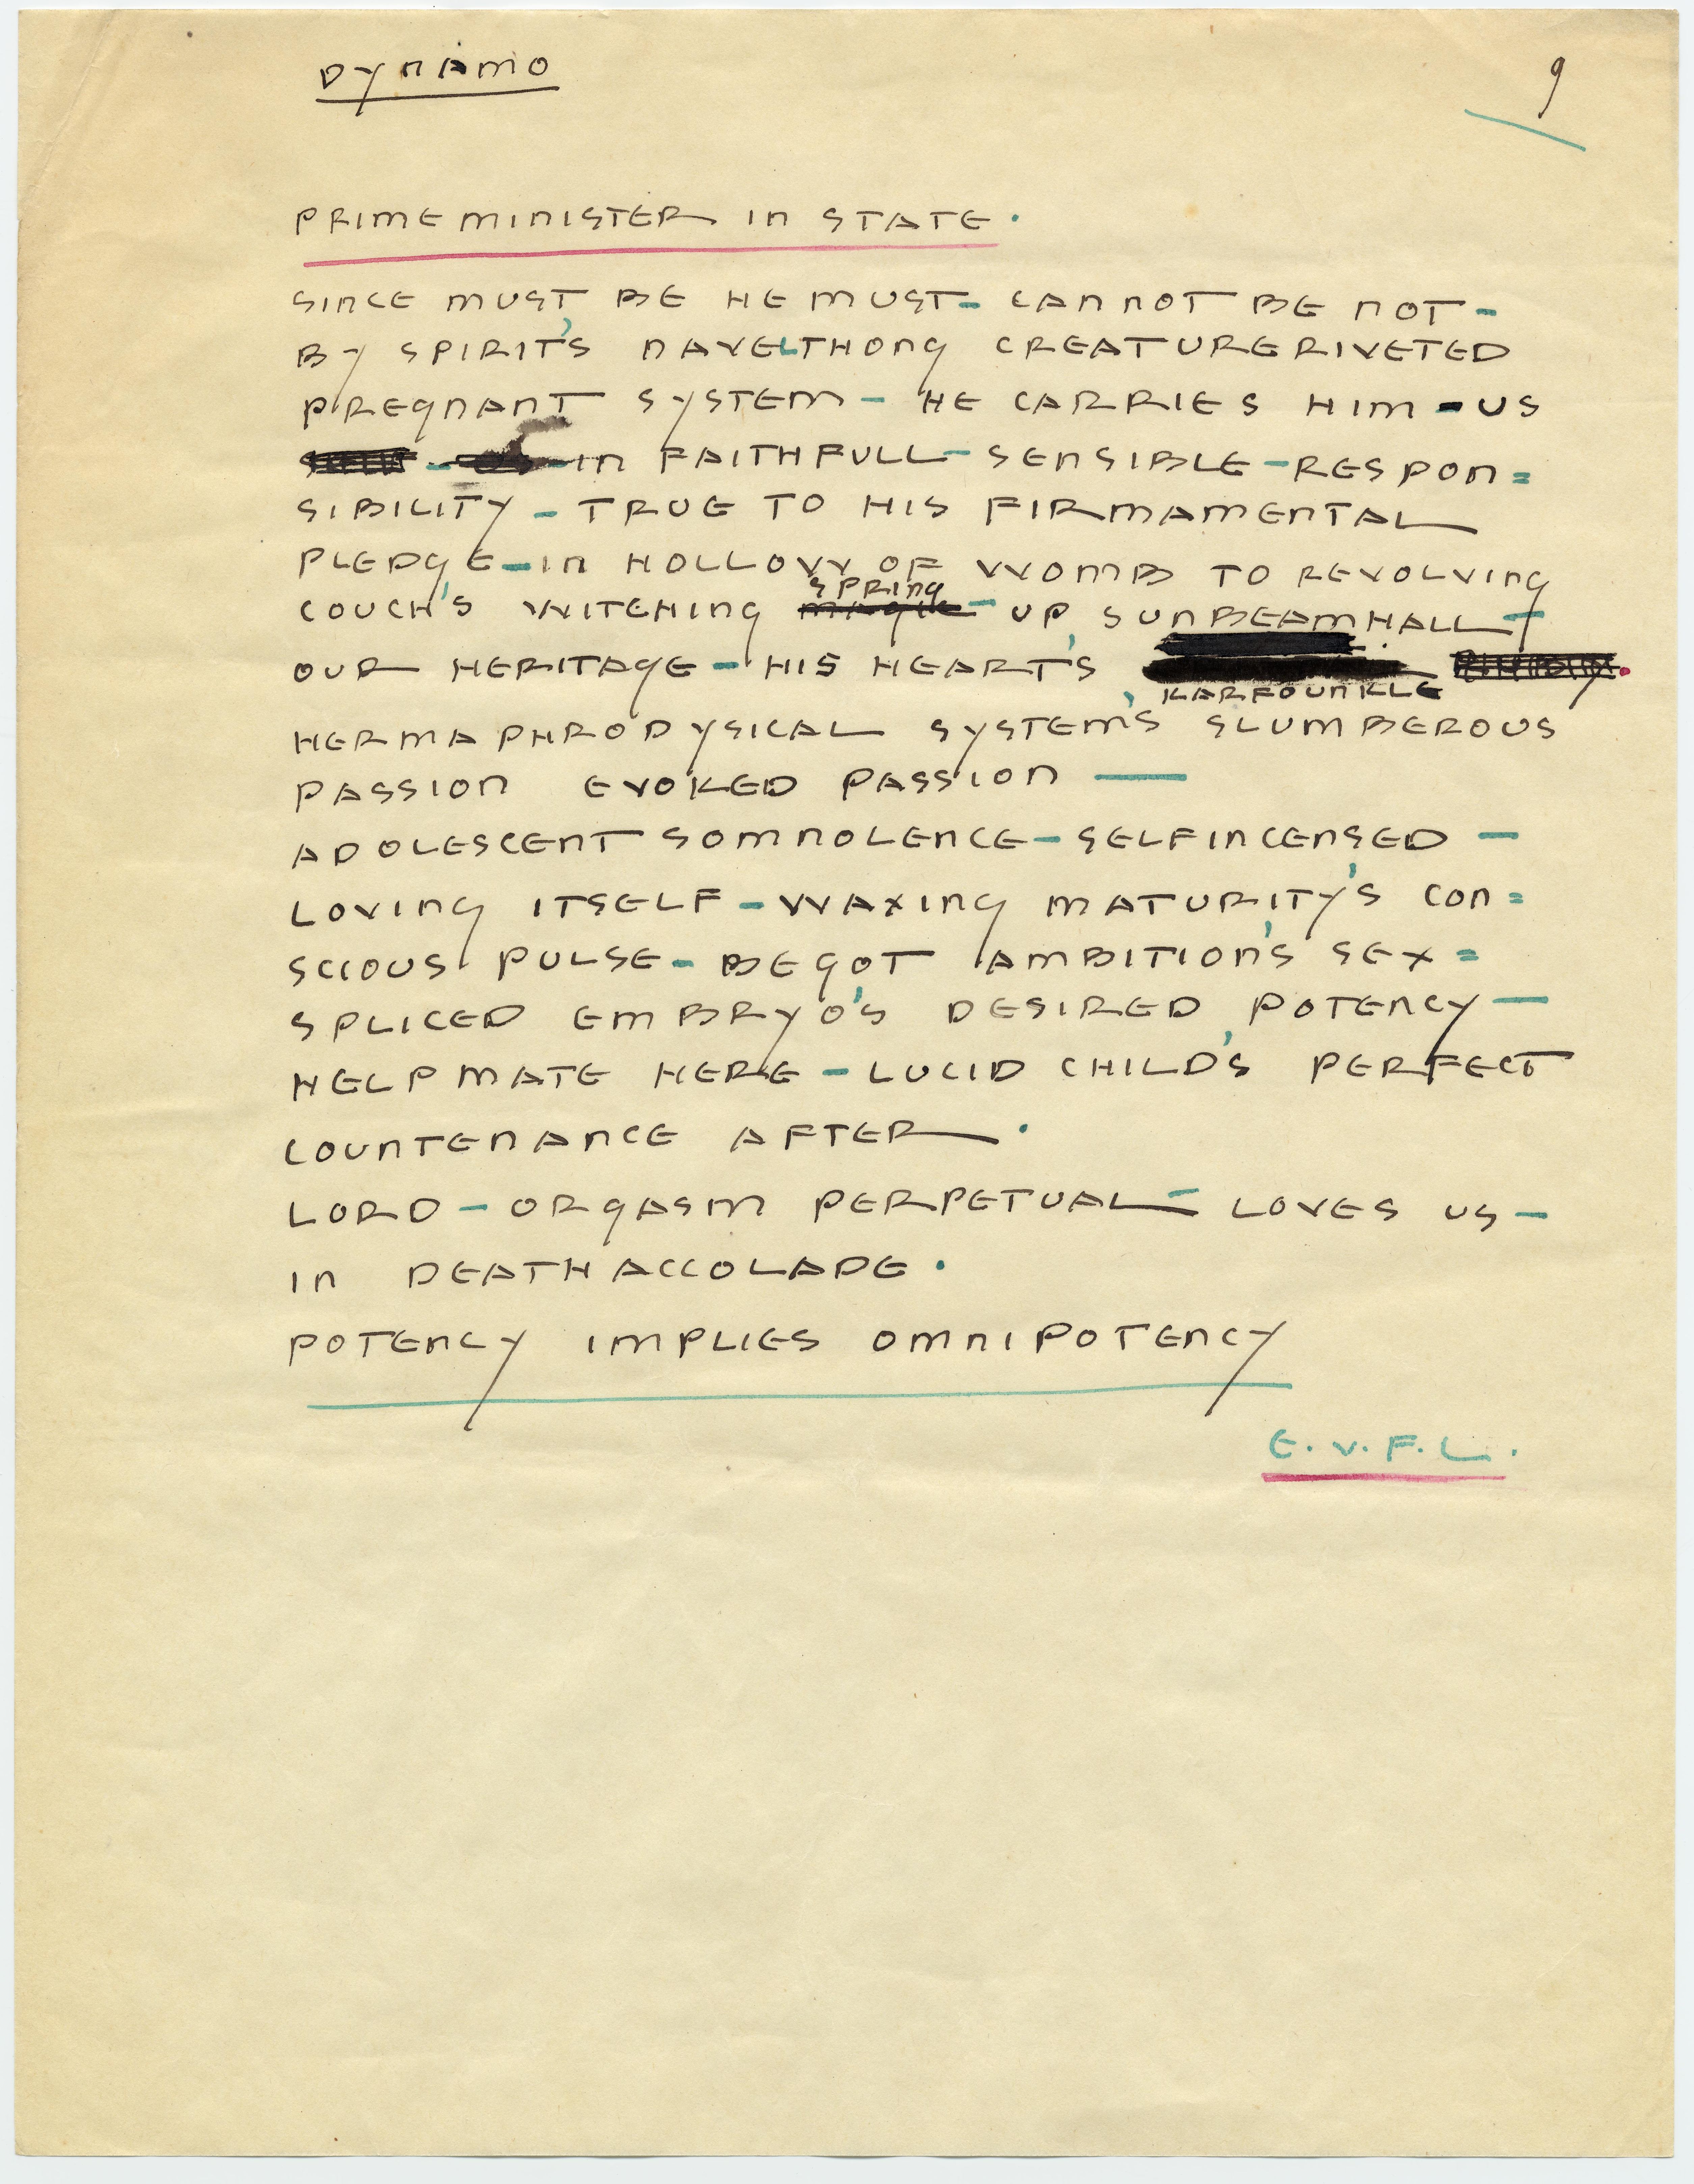 DYNAMO
9
PRIMEMINISTER IN STATE.
SINCE MUST BE HE MUST – CANNOT BE NOT –
BY SPIRIT'S NAVELTHONG CREATURERIVETED
PREGNANT SYSTEM – HE CARRIES HIM – US
– IN FAITHFULL – SENSIBLE – RESPON=
SIBILITY – TRUE TO HIS FIRMAMENTAL
PLEDGE – IN HOLLOW OF WOMB TO REVOLVING
SPRING
COUCH'S WITCHING – UP SUNBEAMHALL –
OUR HERITAGE – HIS HEART'S
KARFOUNKLE
HERMAPHRODYSICAL SYSTEM'S SLUMBEROUS
PASSION EVOKED PASSION —
ADOLESCENT SOMNOLENCE – SELFINCENSED –
LOVING ITSELF – WAXING MATURITY'S CON=
SCIOUS PULSE – BEGOT AMBITION'S SEX=
SPLICED EMBRYO'S DESIRED POTENCY —
HELPMATE HERE – LUCID CHILD'S PERFECT
COUNTENANCE AFTER.
LORD – ORGASM PERPETUAL – LOVES US –
IN DEATHACCOLADE.
POTENCY IMPLIES OMNIPOTENCY
E.V.F.L.